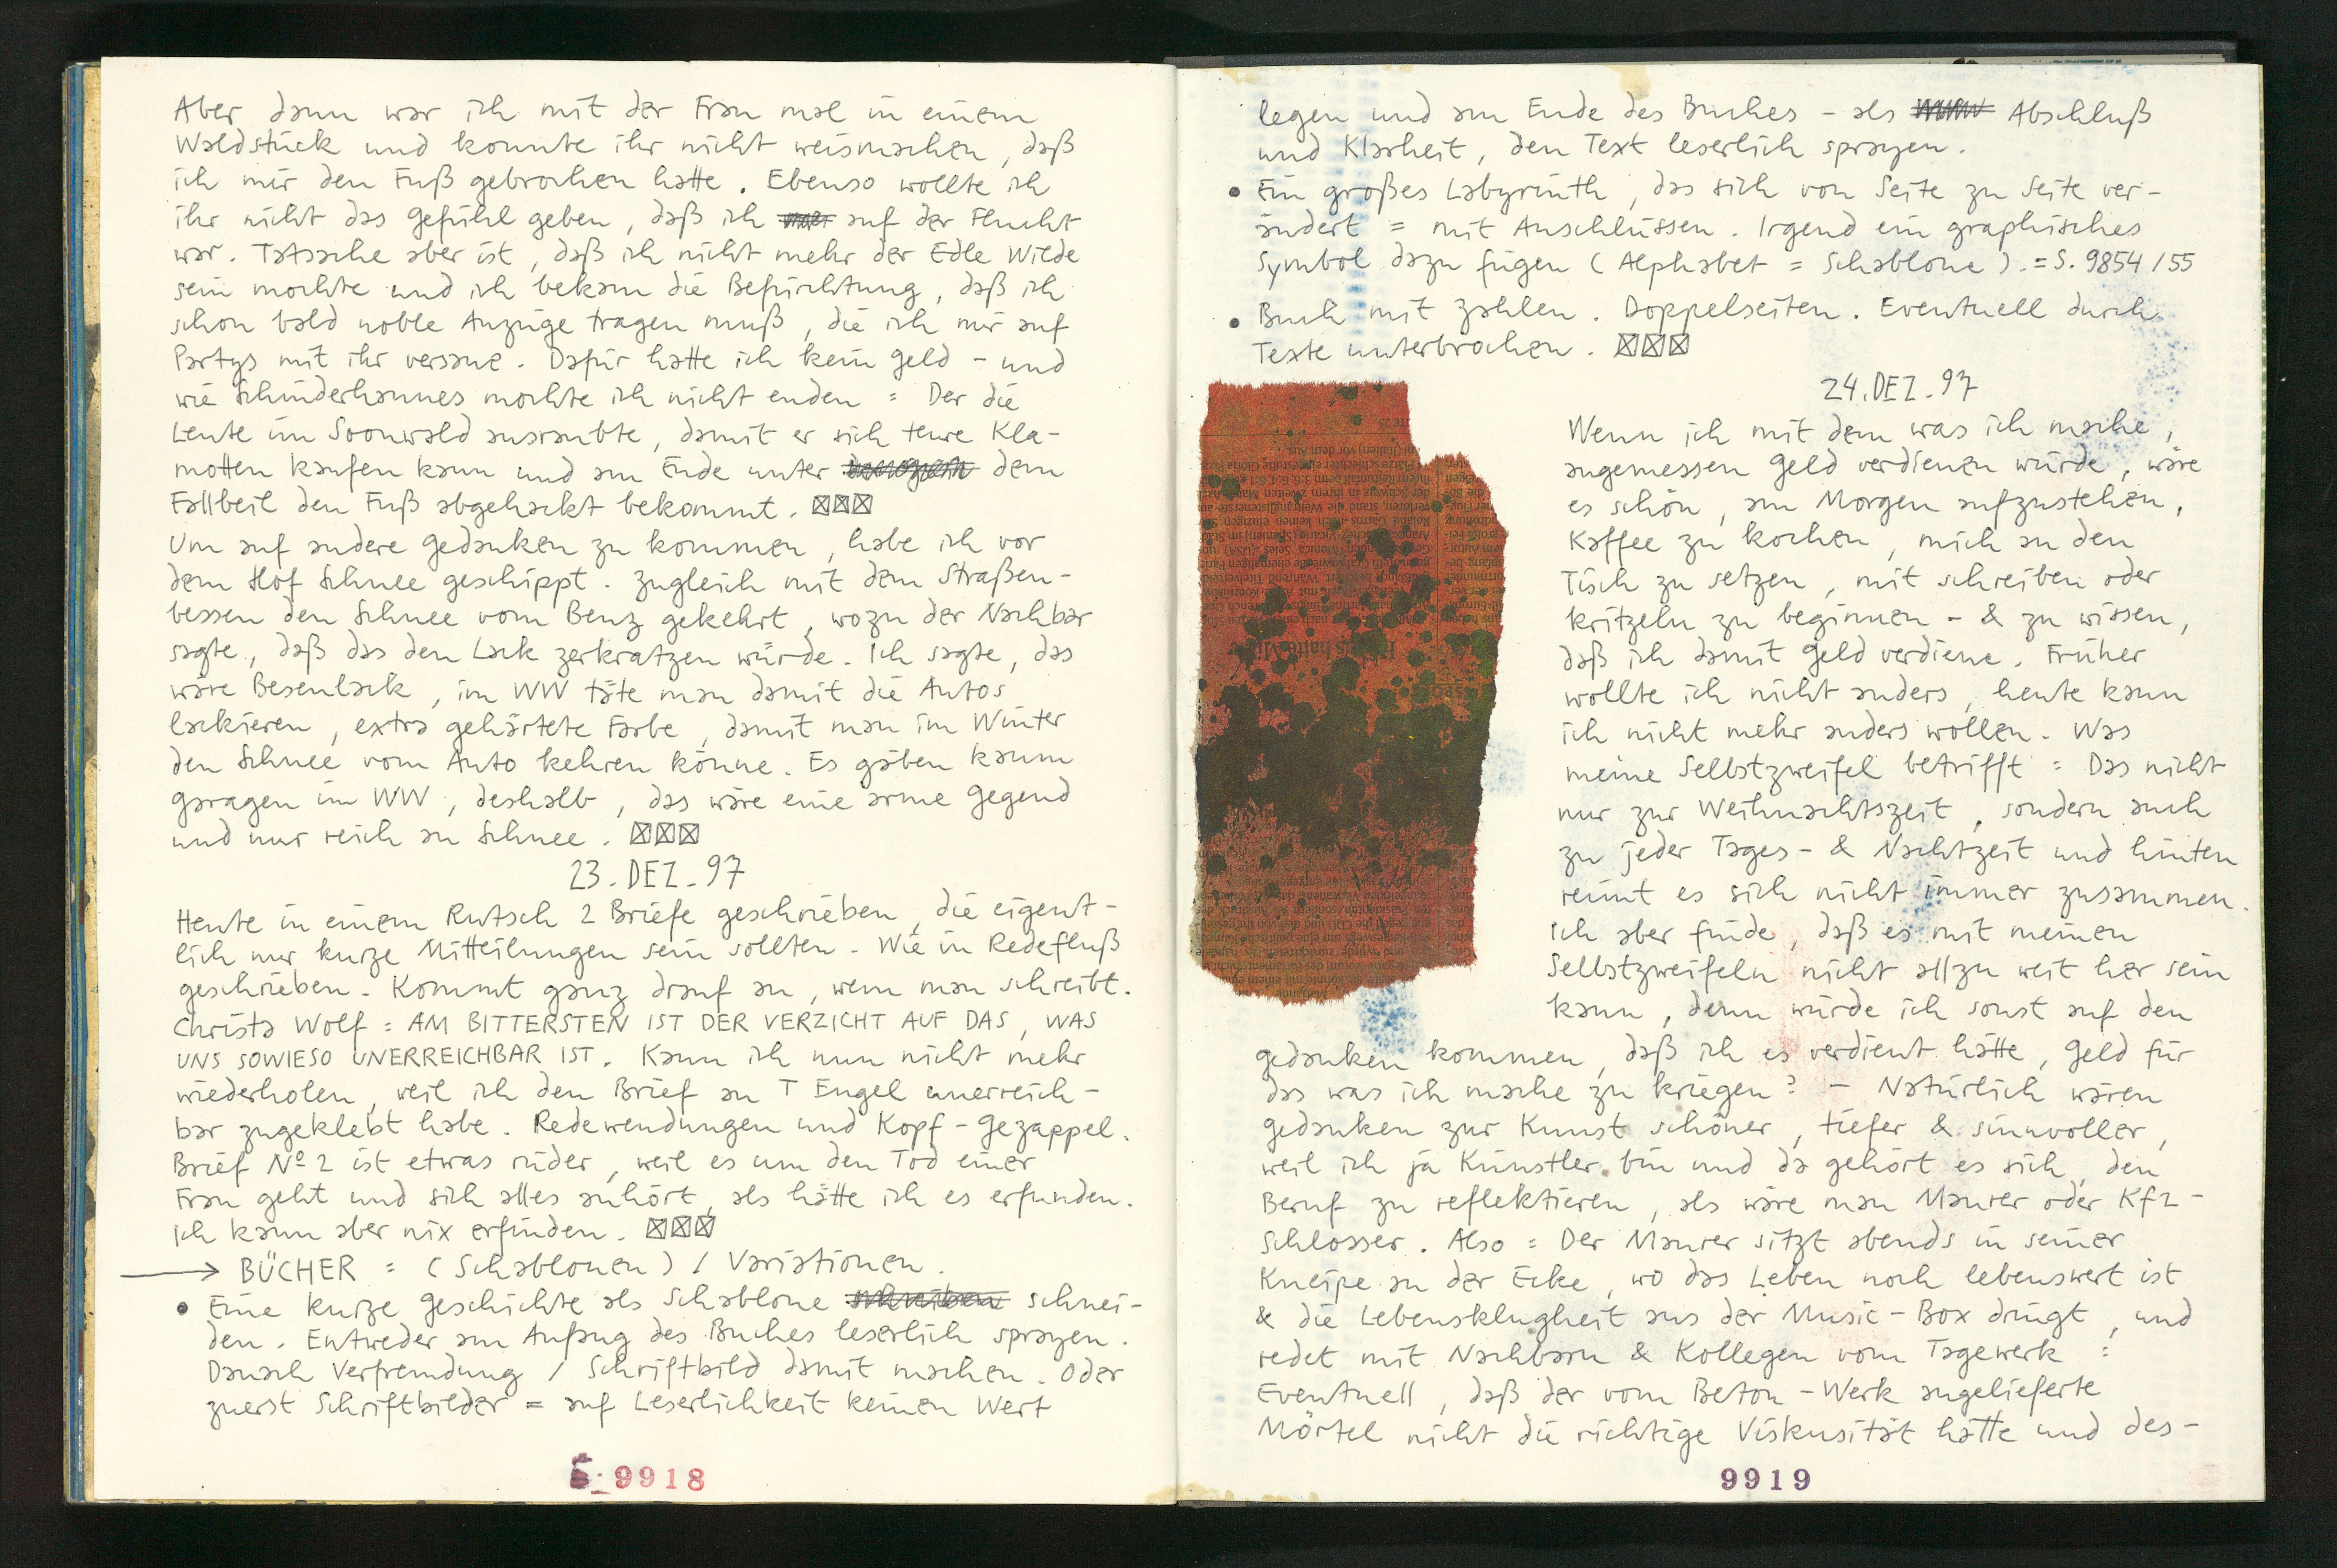 Aber dann war ich mit der Frau mal in einem
Waldstück und konnte ihr nicht weismachen, daß
ich mir den Fuß gebrochen hatte. Ebenso wollte ich
ihr nicht das Gefühl geben, daß ich auf der Flucht
war. Tatsache aber ist, daß ich nicht mehr der Edle Wilde
sein mochte und ich bekam die Befürchtung, daß ich
schon bald noble Anzüge tragen muß, die ich mir auf
Partys mit ihr versaue. Dafür hatte ich kein Geld - und
wie Schinderhannes mochte ich nicht enden = Der die
Leute im Soonwald ausraubte, damit er sich teure Kla-
motten kaufen kann und am Ende unter dem
Fallbeil den Fuß abgehackt bekommt. ☒☒☒
Um auf andere Gedanken zu kommen, habe ich vor
dem Hof Schnee geschippt. Zugleich mit dem Straßen-
bessen den Schnee vom Benz gekehrt, wozu der Nachbar
sagte, daß das den Lack zerkratzen würde. Ich sagte, das
wäre Besenlack, im WW täte man damit die Autos
lackieren, extra gehärtete Farbe, damit man im Winter
den Schnee vom Auto kehren könne. Es gäben kaum
Garagen im WW, deshalb, das wäre eine arme Gegend
und nur reich an Schnee. ☒☒☒
23. DEZ. 97
Heute in einem Rutsch 2 Briefe geschrieben, die eigent-
lich nur kurze Mitteilungen sein sollten. Wie in Redefluß
geschrieben. Kommt ganz drauf an, wem man schreibt.
Christa Wolf = AM BITTERSTEN IST DER VERZICHT AUF DAS, WAS
UNS SOWIESO UNERREICHBAR IST. Kann ich nun nicht mehr
wiederholen, weil ich den Brief an T Engel unerreich-
bar zugeklebt habe. Redewendungen und Kopf-Gezappel.
Brief Nº 2 ist etwas rüder, weil es um den Tod einer
Frau geht und sich alles anhört, als hätte ich es erfunden.
Ich kann aber nix erfinden. ☒☒☒
→ BÜCHER = (Schablonen) / Variationen.
• Eine kurze Geschichte als Schablone schreiben schnei-
den. Entweder am Anfang des Buches leserlich sprayen.
Danach Verfremdung / Schriftbild damit machen. Oder
zuerst Schriftbilder = auf Leserlichkeit keinen Wert
9918
legen und am Ende des Buches - als Abschluß
und Klarheit, den Text leserlich sprayen.
• Ein großes Labyrinth, das sich von Seite zu Seite ver-
ändert = mit Anschlüssen. Irgend ein graphisches
Symbol dazu fügen (Alphabet = Schablone). = S. 9854/55
• Buch mit Zahlen. Doppelseiten. Eventuell durch
Texte unterbrochen. ☒☒☒
24. DEZ. 97
Wenn ich mit dem was ich mache,
angemessen Geld verdienen würde, wäre
es schön, am Morgen aufzustehen,
Kaffee zu kochen, mich an den
Tisch zu setzen, mit schreiben oder
kritzeln zu beginnen - & zu wissen,
daß ich damit Geld verdiene. Früher
wollte ich nicht anders, heute kann
ich nicht mehr anders wollen. Was
meine Selbstzweifel betrifft = Das nicht
nur zur Weihnachtszeit, sondern auch
zu jeder Tages- & Nachtzeit und hinten
reimt es sich nicht immer zusammen.
Ich aber finde, daß es mit meinen
Selbstzweifeln nicht allzu weit her sein
kann, denn würde ich sonst auf den
Gedanken kommen, daß ich es verdient hätte, Geld für
das was ich mache zu kriegen? - Natürlich wären
Gedanken zur Kunst schöner, tiefer & sinnvoller,
weil ich ja Künstler bin und da gehört es sich, den
Beruf zu reflektieren, als wäre man Maurer oder Kfz-
Schlosser. Also = Der Maurer sitzt abends in seiner
Kneipe an der Ecke, wo das Leben noch lebenswert ist
& die Lebensklugheit aus der Music-Box dringt, und
redet mit Nachbarn & Kollegen vom Tagewerk =
Eventuell, daß der vom Beton-Werk angelieferte
Mörtel nicht die richtige Viskusität hätte und des-
9919